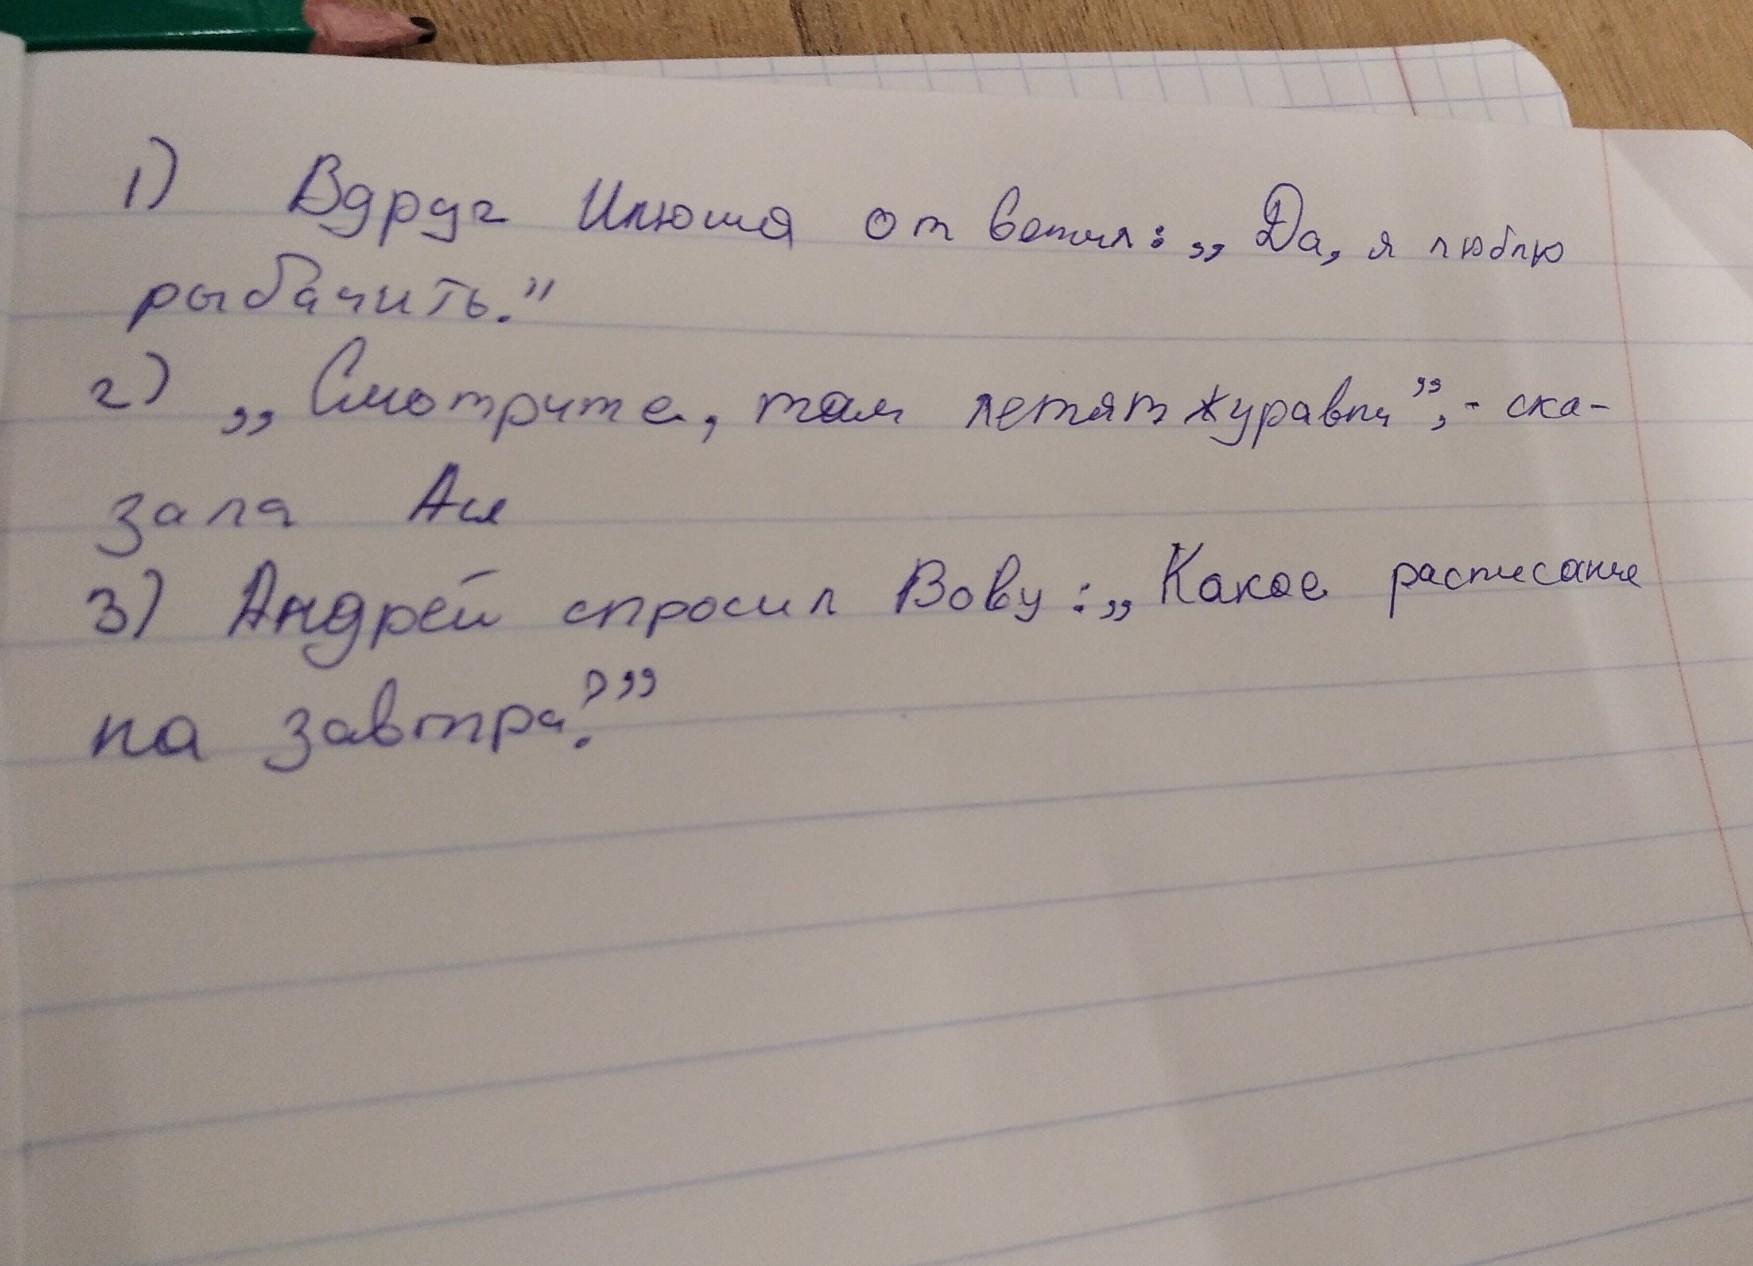 1) Вдруг Илюша ответил: „Да, я люблю
рыбачить."
2) „Смотрите, там летят журавли”, - ска-
зала Ася
3) Андрей спросил Вову: „Какое расписание
на завтра?”